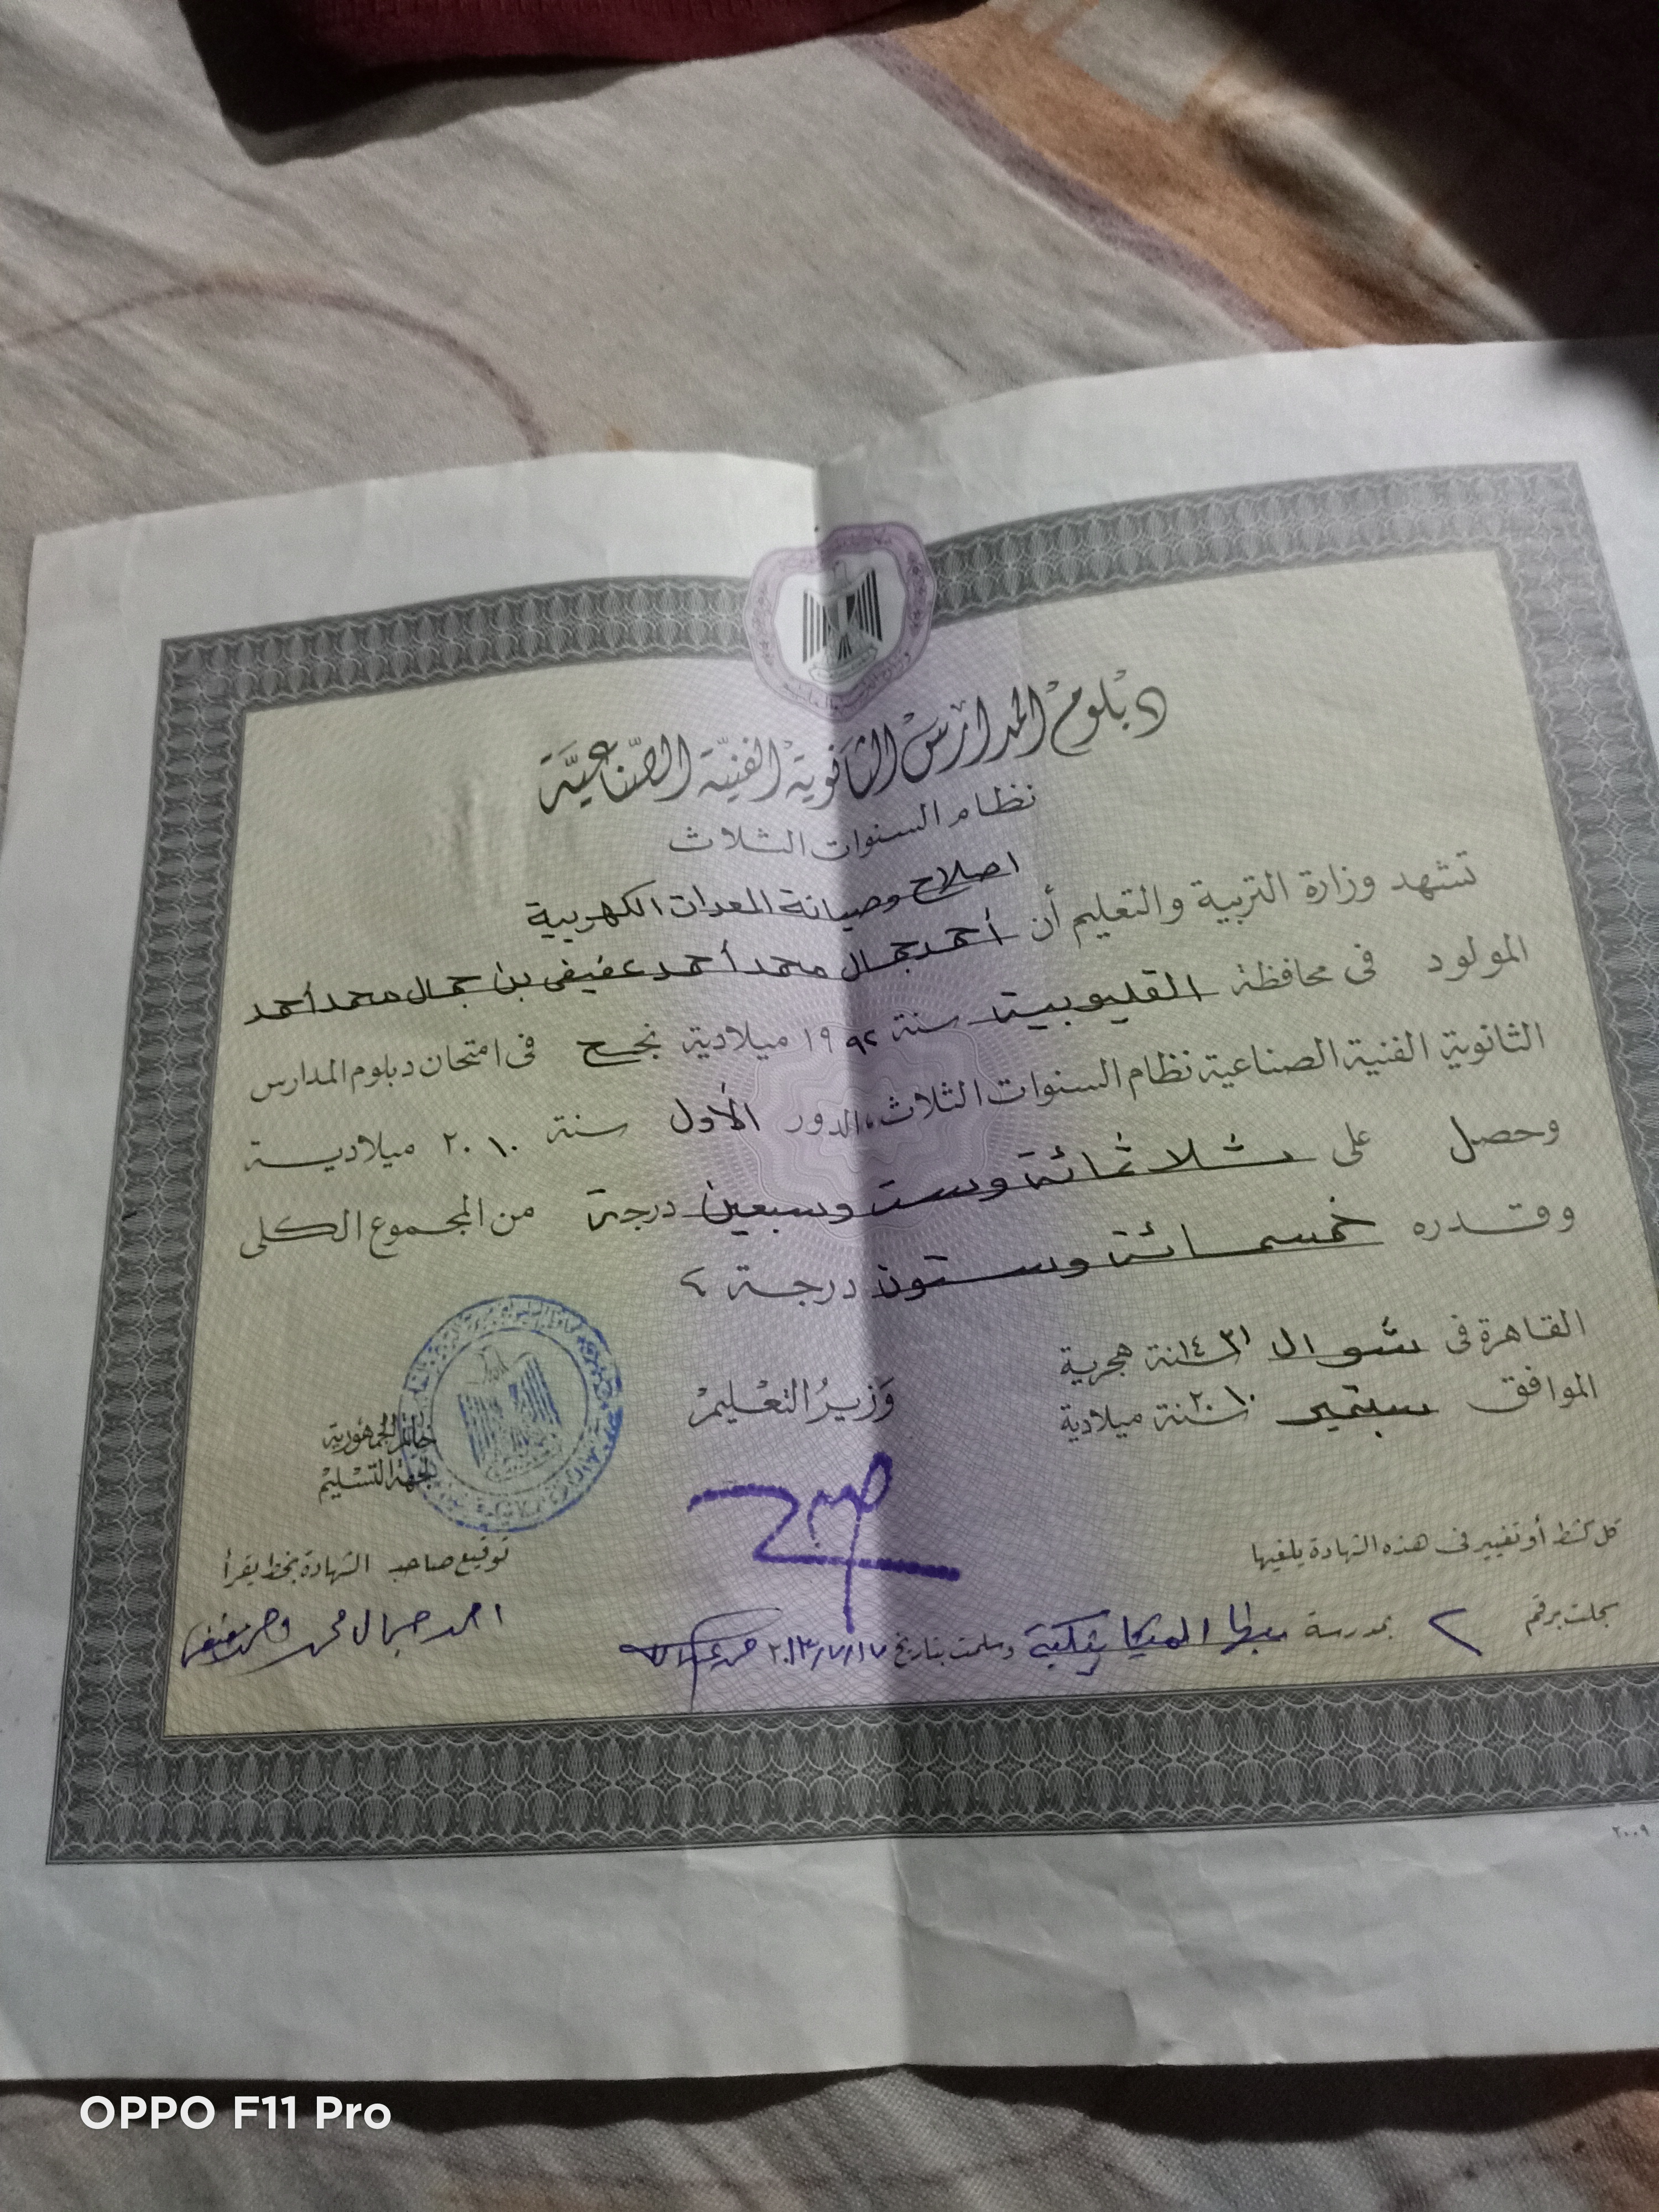 دبلوم المدارس الثانوية الفنية الصناعية
نظام السنوات الثلاث
اصلاح وصيانة المعدات الكهربية
تشهد وزارة التربية والتعليم أن أحمد جمال محمد أحمد عفيفى بن جمال محمد أحمد
المولود فى محافظة القليوبية سنة ١٩٩٢ ميلادية نجح فى امتحان دبلوم المدارس
الثانوية الفنية الصناعية نظام السنوات الثلاث، الدور الأول سنة ٢٠١٠ ميلادية
وحصل على ثلاثمائة وست وسبعين درجة من المجموع الكلى
وقدره خمسمائة وستون درجة
القاهرة فى شوال سنة ١٤٣١ هجرية
الموافق سبتمبر سنة ٢٠١٠ ميلادية
وزير التعليم
خاتم الجمهورية
لجهة التسليم
كل كشط أو تغيير فى هذه الشهادة يلغيها
توقيع صاحب الشهادة بخط يقرأ
سجلت برقم ٢ بمدرسة الميكانيكية وسلمت بتاريخ ٢٠١٣/٧/١٧
احمد جمال محمد
٢٠٠٩
OPPO F11 Pro